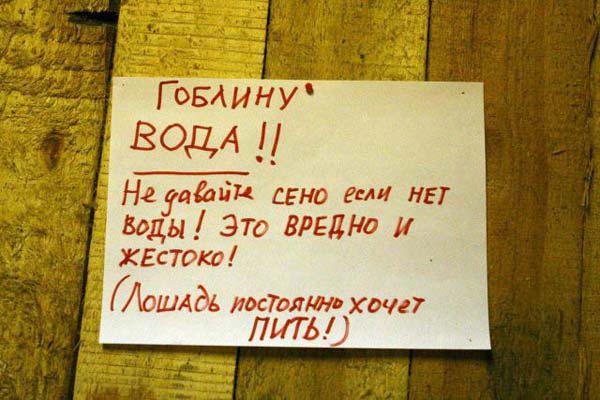 ГОБЛИНУ
ВОДА!!
Не давайте СЕНО если НЕТ
ВОДЫ! ЭТО ВРЕДНО И
ЖЕСТОКО!
(ЛОШАДЬ постоянно хочет
ПИТЬ!)